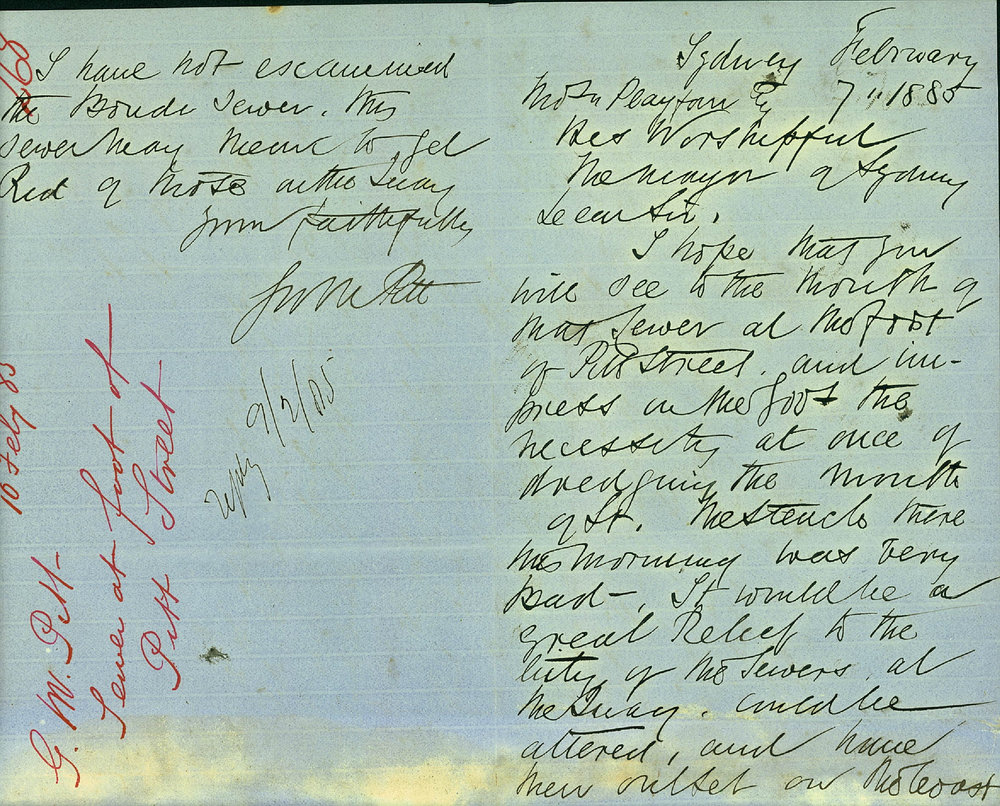 Sydney February
Thos Playfair Esq 7" 1885
His Worshipfful
The mayor of Sydney
Dear Sir,
I hope that you
will see to the mouth of
that Sewer at the foot
of Pitt Street. and im-
press on the Govt the
necessity at once of
dredging the mouth
of it. The stench there
this morning was very
bad -, It would be a
great Relief to the
City if the Sewers at
the Quay. could be
altered, and have
their outlet on the Coast
I have not examined
the Bondi Sewer. this
sewer may mean to get
Rid of those on the Quay
your faithfully
Geo M Pitt
9/2/85
16 Feby 85
G. M. Pitt -
Sewer at foot of
Pitt Street